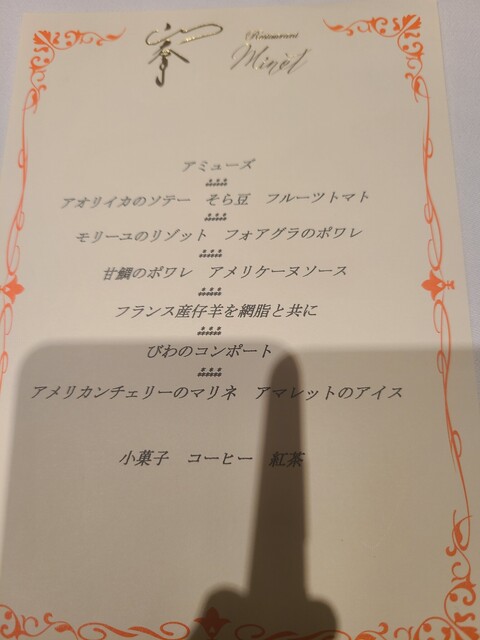 Restaurant
Minêt
アミューズ
アオリイカのソテー そら豆 フルーツトマト
モリーユのリゾット フォアグラのポワレ
甘鯛のポワレ アメリケーヌソース
フランス産仔羊を網脂と共に
びわのコンポート
アメリカンチェリーのマリネ アマレットのアイス
小菓子 コーヒー 紅茶